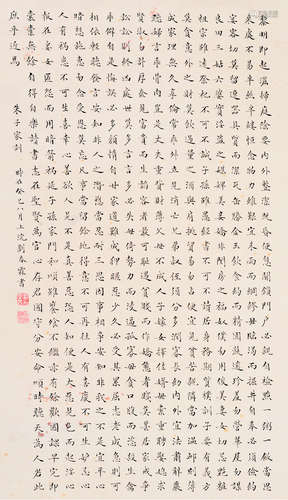 黎明即起灑掃庭除要內外整潔既昏便息關鎖門戶必親自檢點一粥一飯當思
來處不易半絲半縷恆念物力維艱宜未雨而綢繆毋臨渴而掘井自奉必須儉約
宴客切勿留連器具質而潔瓦缶勝金玉飲食約而精園蔬愈珍羞勿營華屋勿謀
良田三姑六婆實淫盜之媒婢美妾嬌非閨房之福奴僕勿用俊美妻妾切忌豔粧
祖宗雖遠祭祀不可不誠子孫雖愚經書不可不讀居身務期質樸訓子要有義方
勿貪意外之財勿飲過量之酒與肩挑貿易勿佔便宜見貧苦親鄰須多溫卹刻薄
成家理無久享倫常乖舛立見消亡兄弟叔姪須分多潤寡長幼內外宜法肅辭嚴
聽婦言乖骨肉豈是丈夫重資財薄父母不成人子嫁女擇佳婿毋索重聘娶媳求
淑女勿計厚奩見富貴而生諂容者最可恥遇貧窮而作驕態者賤莫甚居家戒爭
訟訟則終凶處世戒多言言多必失毋恃勢力而凌逼孤寡毋貪口腹而恣殺生禽
乖僻自是悔誤必多頹惰自甘家道難成狎昵惡少久必受其累屈志老成急則可
相依輕聽發言安知非人之譖愬當忍耐三思因事相爭安知非我之不是須平心
暗想施惠勿念受恩莫忘凡事當留餘地得意不可再往人有喜慶不可生妒忌心
人有禍患不可生喜幸心善欲人見不是真善惡恐人知便是大惡見色而起淫心
報在妻女匿怨而用暗箭禍延子孫家門和順雖饔飧不繼亦有餘歡國課早完即
囊橐無餘自得至樂讀書志在聖賢為官心存君國守分安命順時聽天為人若此
庶乎近焉
朱子家訓
時在癸巳八月上浣劉春霖書